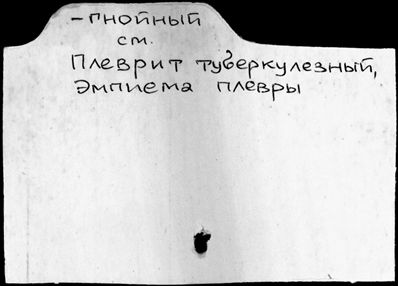 - гнойный
см.
Плеврит туберкулезный,
Эмпиема плевры